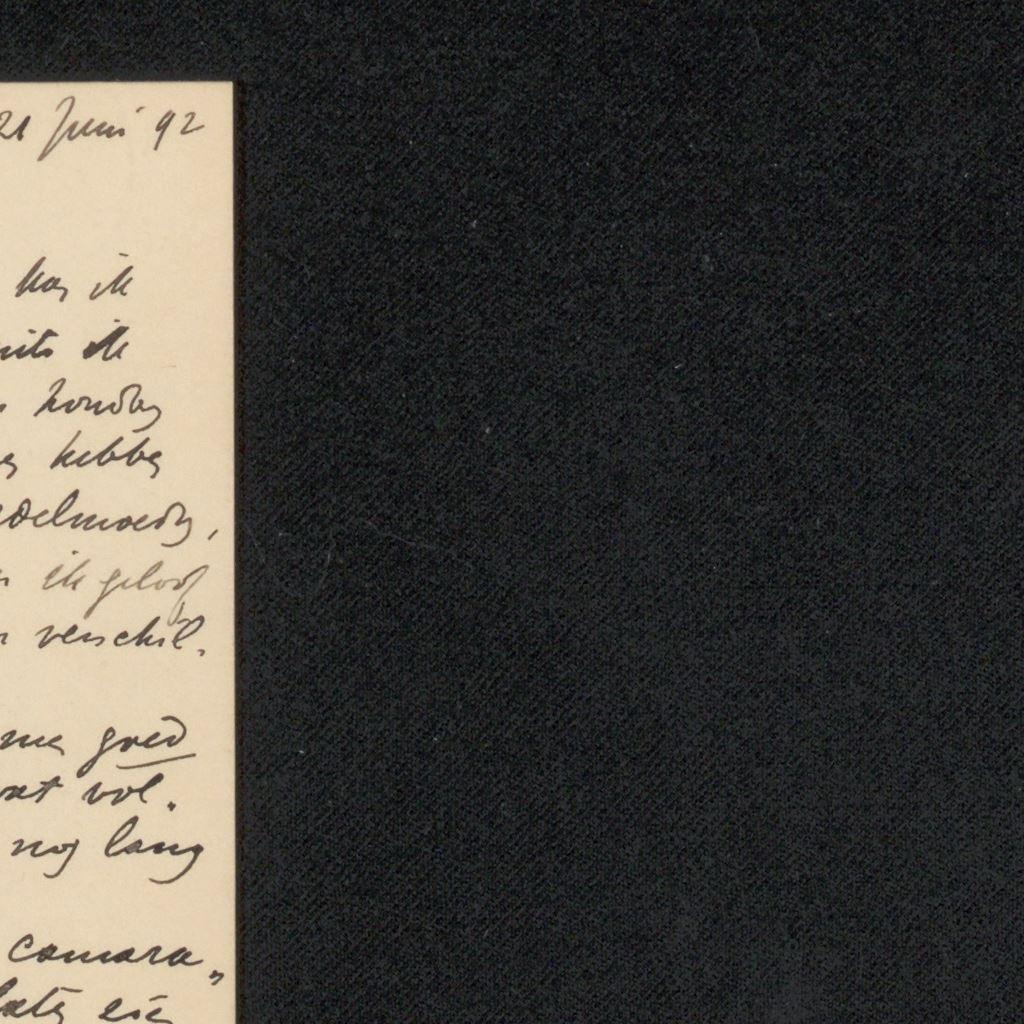 21 Juni 92
kon ik
mits ik
houden
hebben
edelmoedig,
ik geloof
verschil.
me goed
wat vol.
nog lang
camara„
laten een